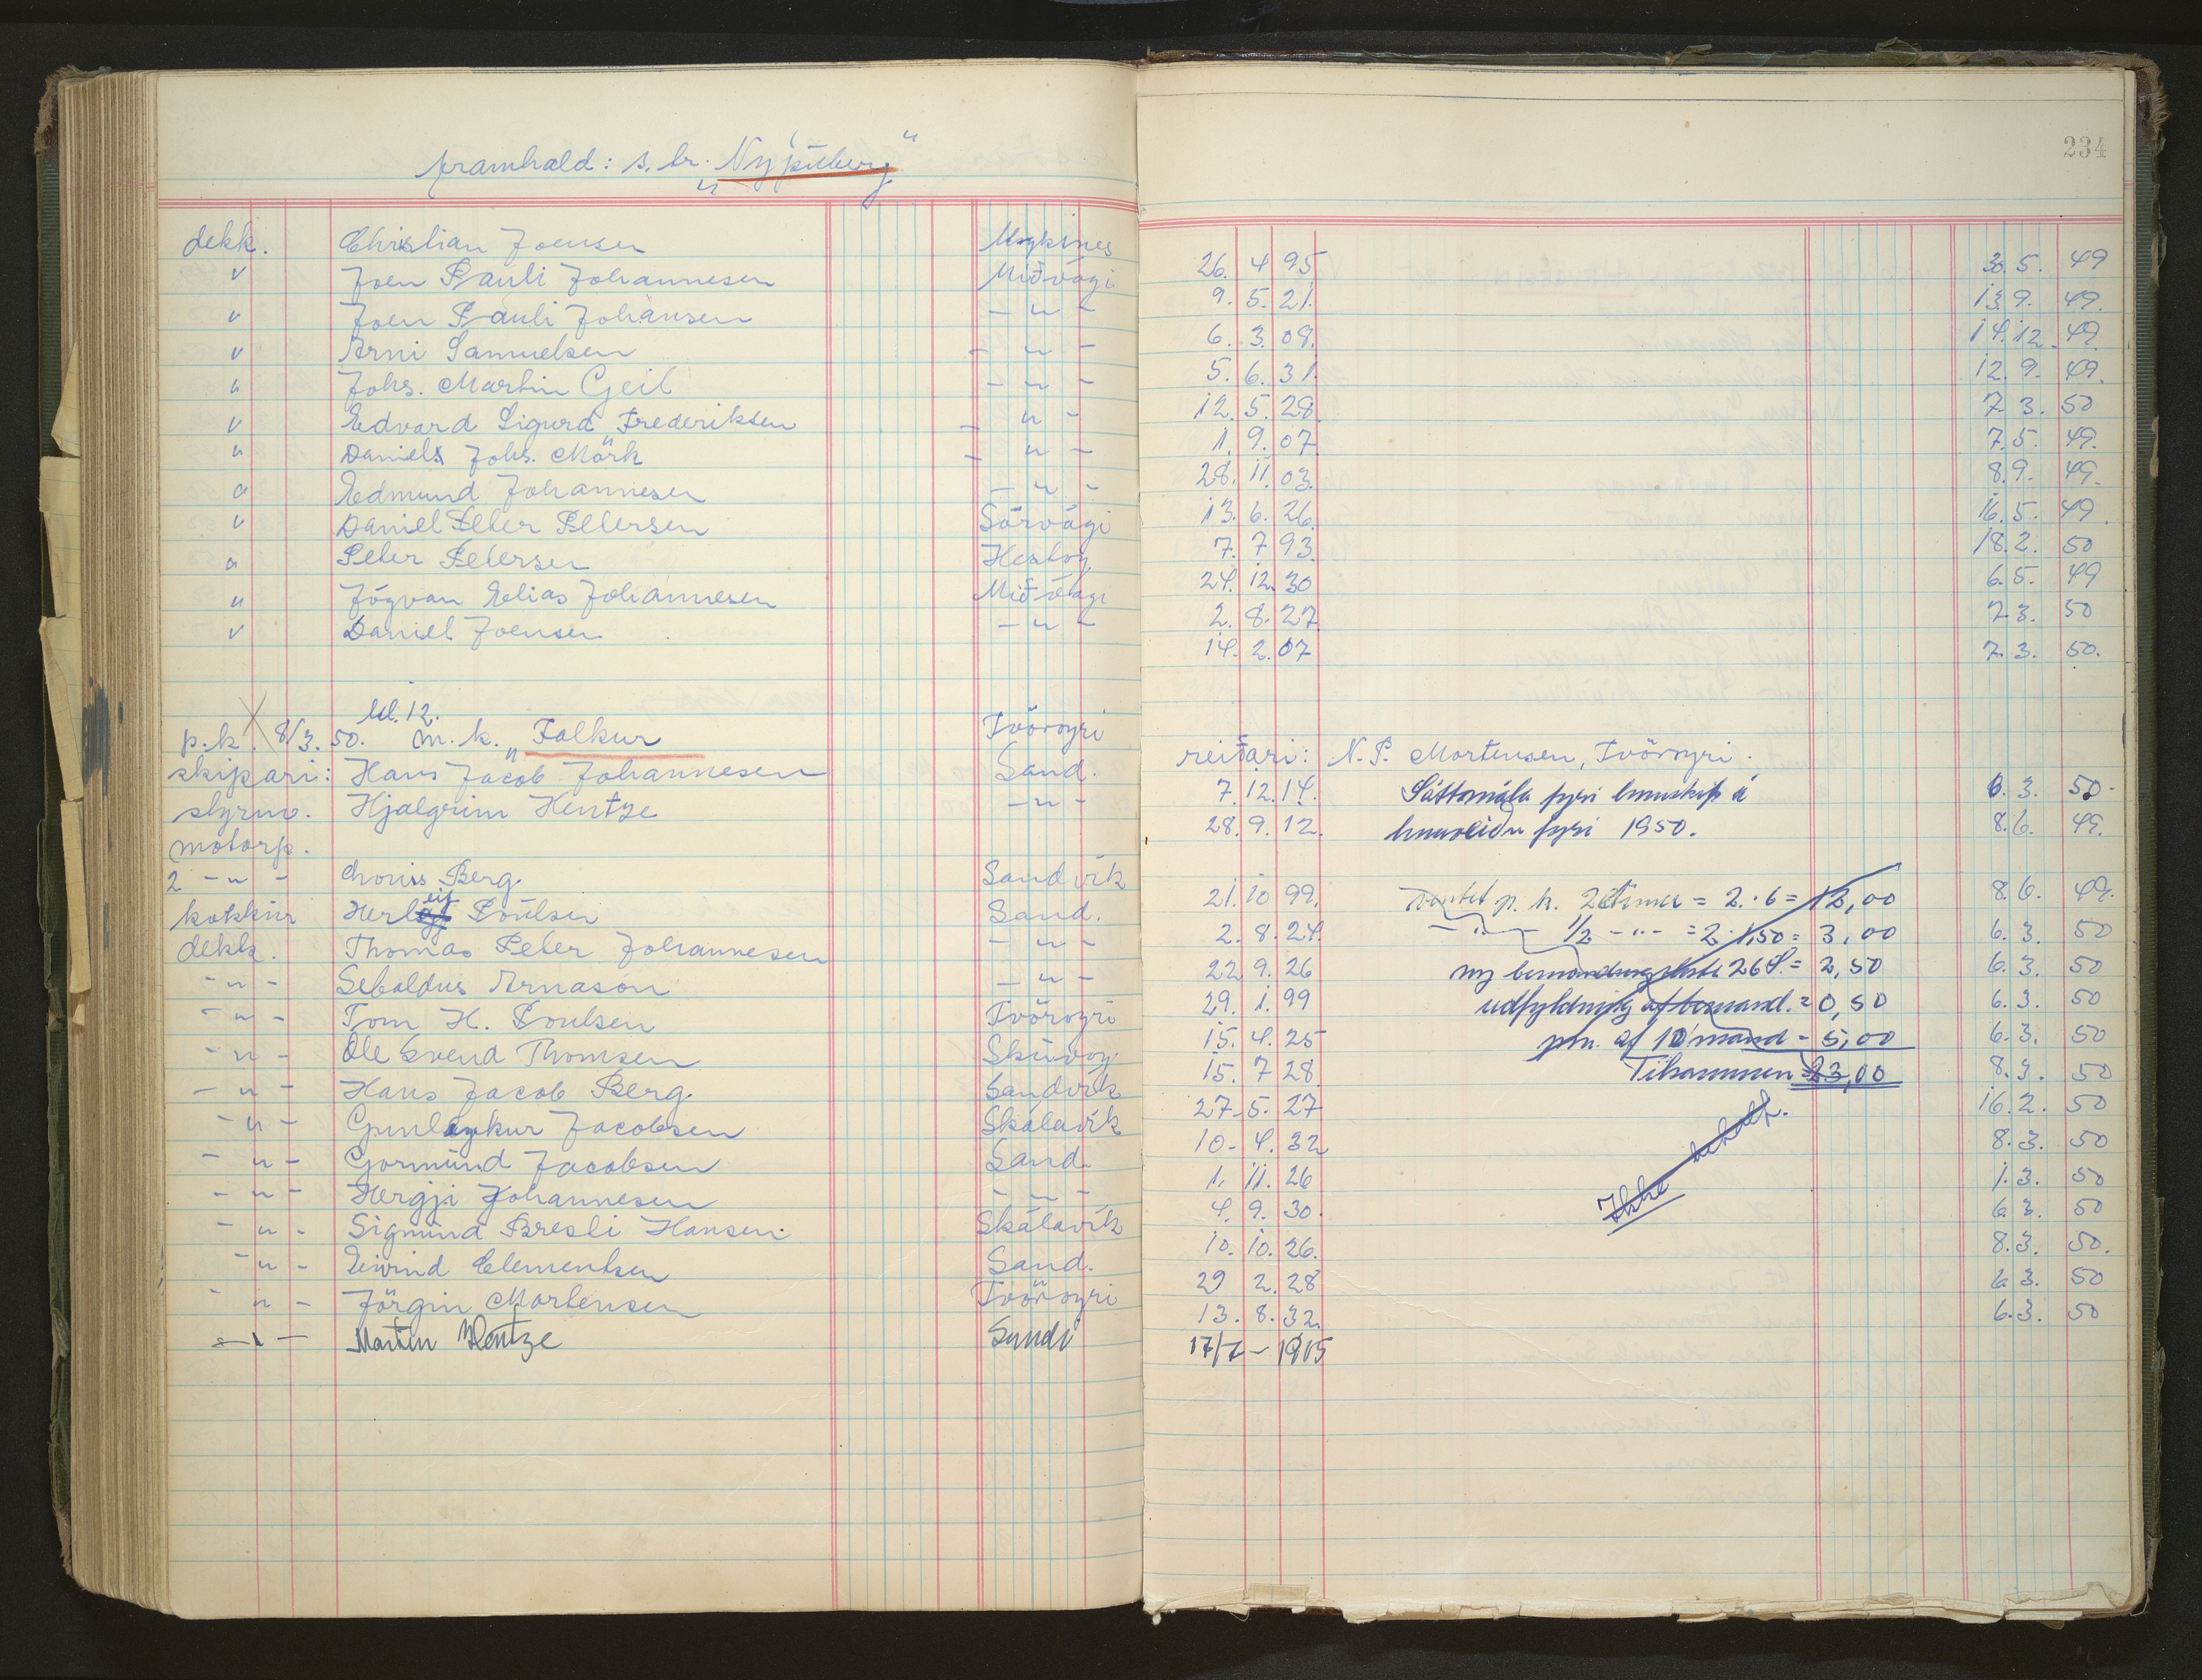 framhald: s. br. „Nypúberg"
234
dekk. Christian Joensen Mykines 26. 4 95 30. 5. 49
v Joen Pauli Johannesen Miðvági 9. 5. 21. 13. 9. 49.
v Joen Pauli Johansen - u - 6. 3. 08. 14. 12. 49.
v Arni Samuelsen - u - 5. 6. 31. 12. 9. 49.
u Johs. Martin Geil - u - 12. 5. 28. 7. 3. 50
v Edvard Sigurd Frederiksen - u - 1. 9. 07. 7. 5. 49.
u Daniel Johs. Mörk - u - 28. 11. 03. 8. 9. 49.
u Edmund Johannesen - u - 13. 6. 26. 16. 5. 49.
v Daniel Peter Petersen Sörvági 7. 7 93. 18. 2. 50
u Peter Petersen Hestoy 24. 12. 30 6. 5. 49
u Jógvan Elias Johannesen Miðvági 2. 8. 27 7. 3. 50
v Daniel Joensen - u - 14. 2. 07 7. 3. 50.
kl. 12.
p.k. 8/3. 50. m. k. „Falkur Tvöroyri reiðari: N. P. Mortensen, Tvöroyri.
skipari: Hans Jacob Johannesen Sand. 7. 12. 14. Sáttmála fyri línuskip á 6. 3. 50.
styrm. Hjalgrim Hentze - u - 28. 9. 12. línuveiðu fyri 1950. 8. 6. 49.
motorp.
2 - u - Chouis Berg Sandvík 21. 10 99. ventet p. k. 2 timer = 2. · 6 = 12,00 8. 6. 49.
kokkur Herleif Poulsen Sand. 2. 8. 24. - " - 1/2 - " - = 2 · 1,50 = 3,00 6. 3. 50
dekk. Thomas Peter Johannesen - u - 22 9. 26 ny bemandingsliste 26 = 2,50 6. 3. 50
- u - Sebaldus Arnason - u - 29. 1. 99 udfyldning af bemand. = 0,50 6. 3. 50
- u - Tom H. Poulsen Tvöroyri 15. 4. 25 pm. af 10 mand = 5,00 6. 3. 50
- u - Ole Svend Thomsen Skúvoy 15. 7 28 Tilsammen = 23,00 8. 3. 50
- u - Hans Jacob Berg Sandvík 27. 5. 27 16. 2. 50
- u - Gunleykur Jacobsen Skálavík 10. 4. 32 8. 3. 50
- u - Gormund Jacobsen Sand 1. 11. 26 1. 3. 50
- u - Hergji Johannesen - u - 4. 9. 30. 6. 3. 50
- u - Sigmund Bresli Hansen. Skálavík 10. 10. 26. 8. 3. 50.
- u - Eivind Clementsen Sand. 29 2. 28 6. 3. 50
- u - Jörgin Mortensen Tvöroyri 13. 8. 32. 6. 3. 50
Ikke
- " - Martin Hentze Sandi 17/7 - 1915